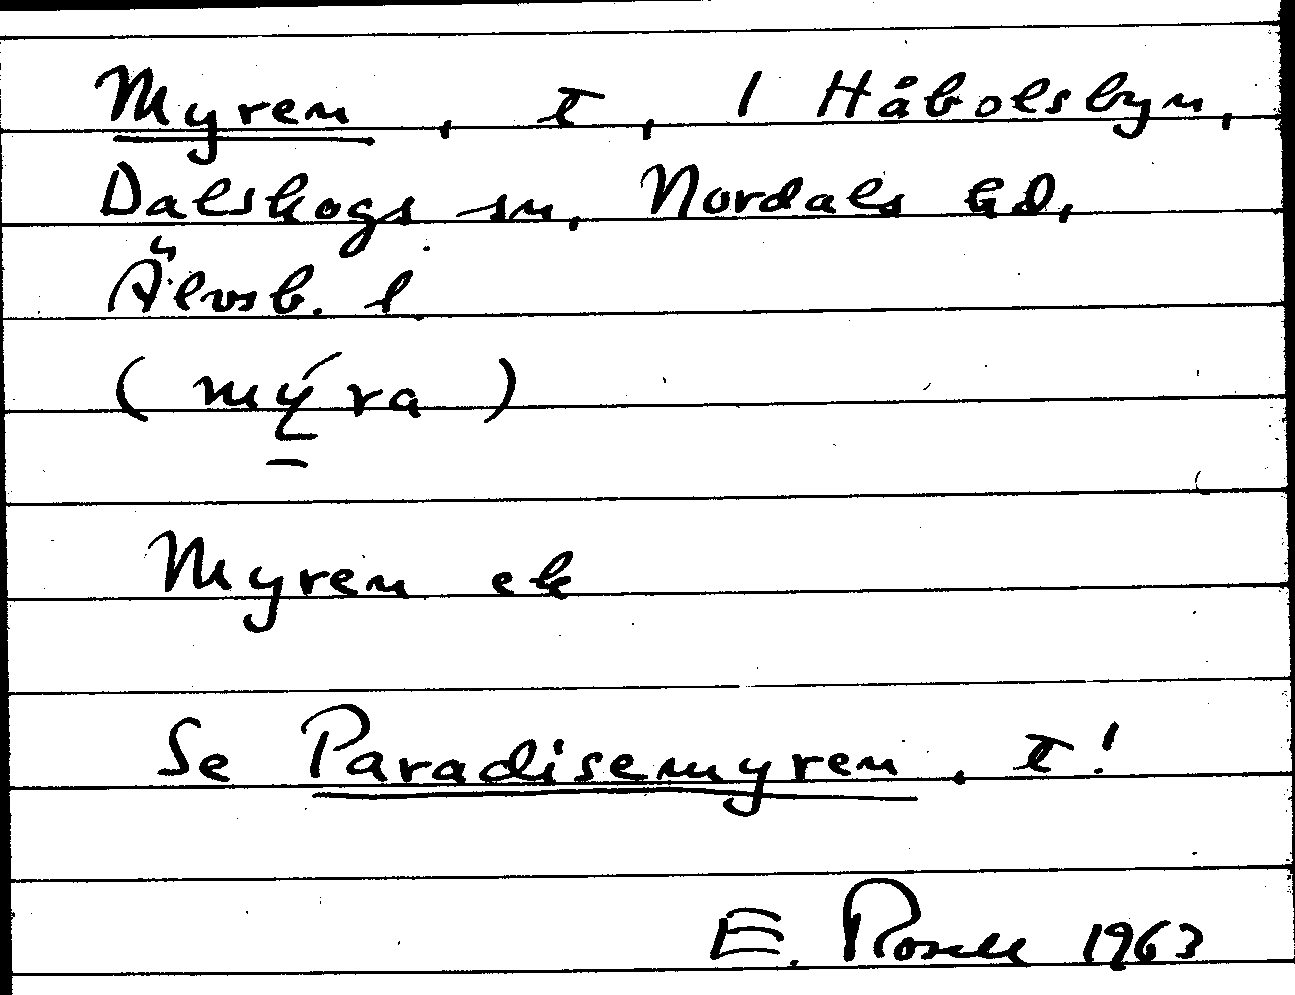 Myren, t, i Håbolsbyn,
Dalskogs sn, Nordals hd,
Älvsb. l.
(mýra)
Myren ek
Se Paradisemyren, t!
E. Rosell 1963